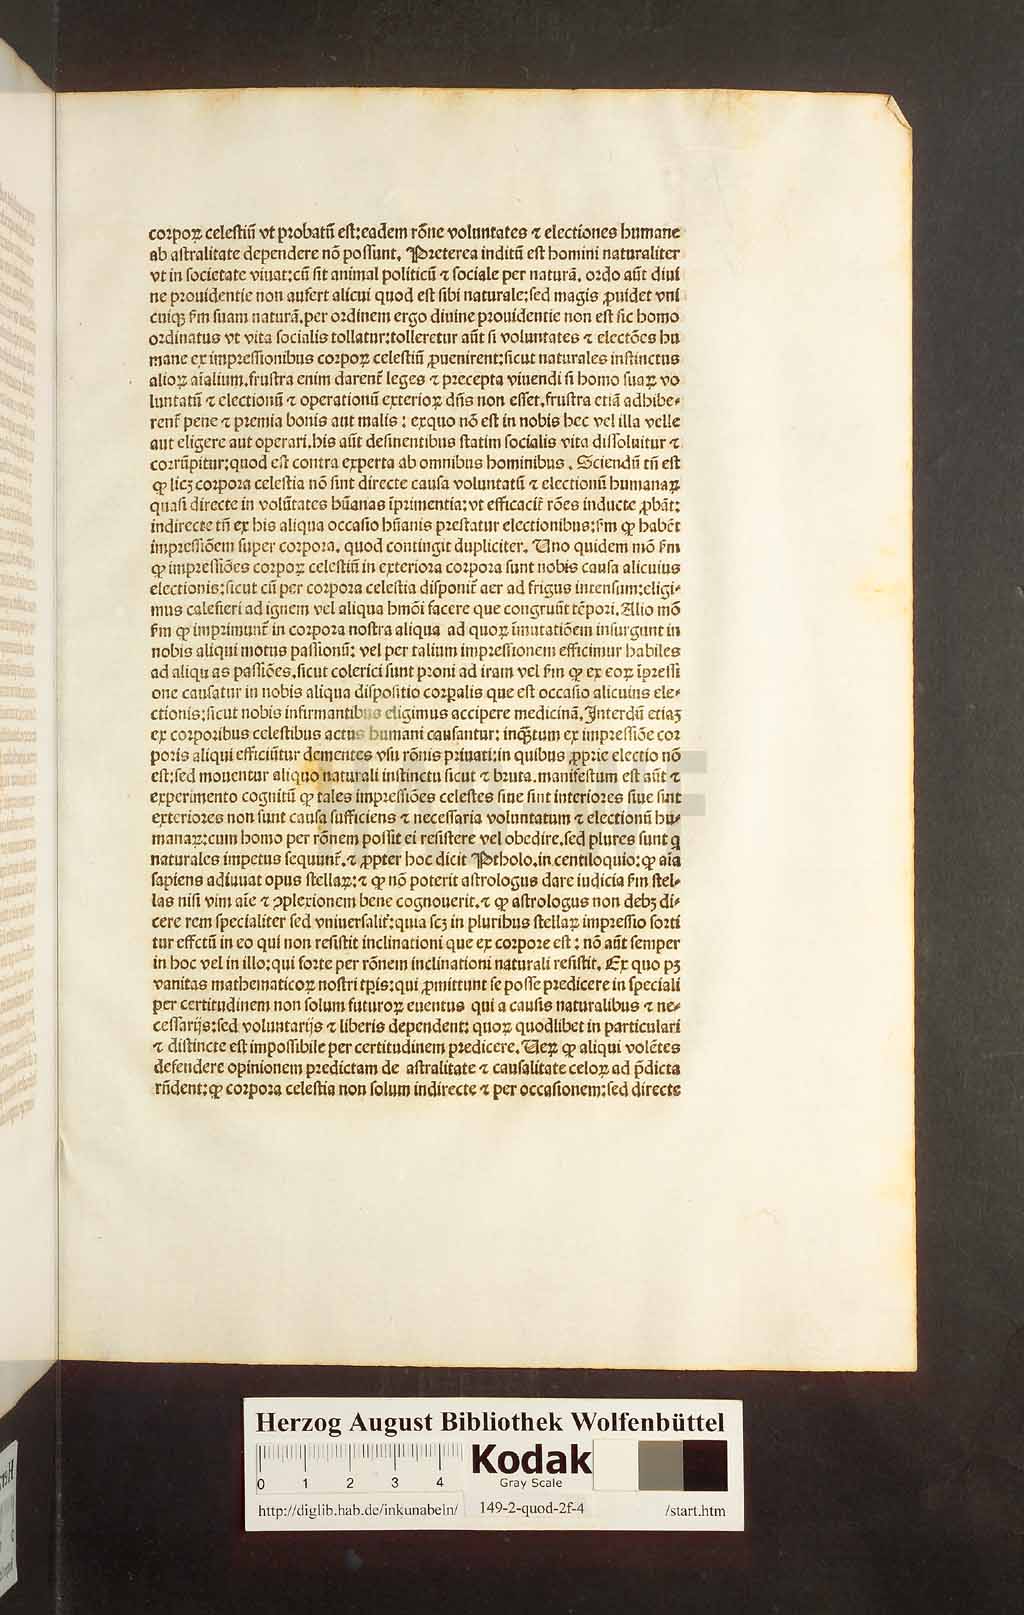 corpoꝝ celestiū vt probatū est: eadem rōne voluntates ⁊ electiones humane
ab astralitate dependere nō possunt. Preterea inditū est homini naturaliter
vt in societate viuat: cū sit animal politicū ⁊ sociale per naturā. ordo aūt diui
ne prouidentie non aufert alicui quod est sibi naturale: sed magis ꝓuidet vni
cuiqꝫ fm suam naturā. per ordinem ergo diuine prouidentie non est sic homo
ordinatus vt vita socialis tollatur: tolleretur aūt si voluntates ⁊ electōes hu
mane ex impressionibus corpoꝝ celestiū ꝓuenirent: sicut naturales instinctus
alioꝝ aīalium. frustra enim darent̄ leges ⁊ precepta viuendi si homo suaꝝ vo
luntatū ⁊ electionū ⁊ operationū exterioꝝ dn̄s non esset. frustra etiā adhibe-
rent̄ pene ⁊ premia bonis aut malis: exquo nō est in nobis hec vel illa velle
aut eligere aut operari. his aūt desinentibus statim socialis vita dissoluitur ⁊
corrūpitur: quod est contra experta ab omnibus hominibus. Sciendū tn̄ est
ꝙ licꝫ corpora celestia nō sint directe causa voluntatū ⁊ electionū humanaꝝ
quasi directe in volūtates hūanas īprimentia: vt efficacit̄ rōes inducte ꝓbāt:
indirecte tn̄ ex his aliqua occasio hūanis prestatur electionibus: fm ꝙ habēt
impressiōem super corpora. quod contingit dupliciter. Uno quidem mō fm
ꝙ impressiōes corpoꝝ celestiū in exteriora corpora sunt nobis causa alicuius
electionis: sicut cū per corpora celestia disponit̄ aer ad frigus intensum: eligi-
mus calefieri ad ignem vel aliqua hmōi facere que congruūt tēpori. Alio mō
fm ꝙ imprimunt̄ in corpora nostra aliqua ad quoꝝ īmutatiōem insurgunt in
nobis aliqui motus passionū: vel per talium impressionem efficimur habiles
ad aliqu as passiōes. sicut colerici sunt proni ad iram vel fm ꝙ ex eoꝝ īpressi
one causatur in nobis aliqua dispositio corpalis que est occasio alicuius ele-
ctionis: sicut nobis infirmantibus eligimus accipere medicinā. Interdū etiaꝫ
ex corporibus celestibus actus humani causantur: inqꝫtum ex impressiōe cor
poris aliqui efficiūtur dementes vsu rōnis priuati: in quibus ꝓprie electio nō
est: sed mouentur aliquo naturali instinctu sicut ⁊ bruta. manifestum est aūt ⁊
experimento cognitū ꝙ tales impressiōes celestes siue sint interiores siue sint
exteriores non sunt causa sufficiens ⁊ necessaria voluntatum ⁊ electionū hu-
manaꝝ: cum homo per rōnem possit ei resistere vel obedire. sed plures sunt q̄
naturales impetus sequunt̄. ⁊ ꝓpter hoc dicit Ptholo. in centiloquio: ꝙ aīa
sapiens adiuuat opus stellaꝝ: ⁊ ꝙ nō poterit astrologus dare iudicia fm stel-
las nisi vim aīe ⁊ ꝯplexionem bene cognouerit. ⁊ ꝙ astrologus non debꝫ di-
cere rem specialiter sed vniuersalit̄: quia scꝫ in pluribus stellaꝝ impressio sorti
tur effctū in eo qui non resistit inclinationi que ex corpore est: nō aūt semper
in hoc vel in illo: qui forte per rōnem inclinationi naturali resistit. Ex quo pꝫ
vanitas mathematicoꝝ nostri tpis: qui ꝓmittunt se posse predicere in speciali
per certitudinem non solum futuroꝝ euentus qui a causis naturalibus ⁊ ne-
cessarijs: sed voluntarijs ⁊ liberis dependent: quoꝝ quodlibet in particulari
⁊ distincte est impossibile per certitudinem predicere. Ueꝝ ꝙ aliqui volētes
defendere opinionem predictam de astralitate ⁊ causalitate celoꝝ ad p̄dicta
rn̄dent: ꝙ corpora celestia non solum indirecte ⁊ per occasionem: sed directe
HAB WF
Herzog August Bibliothek Wolfenbüttel
0 1 2 3 4
Kodak
Gray Scale
http://diglib.hab.de/inkunabeln/ 149-2-quod-2f-4 /start.htm